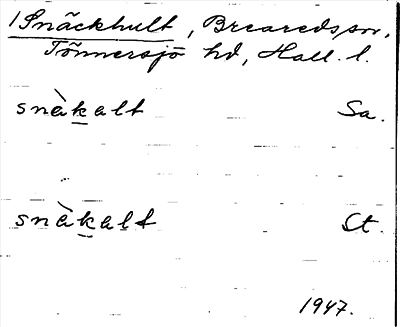 1 Snäckhult, Breareds sn,
Tönnersjö hd, Hall. l.
snàk̲alt Sa.
snàk̲alt St.
1947.